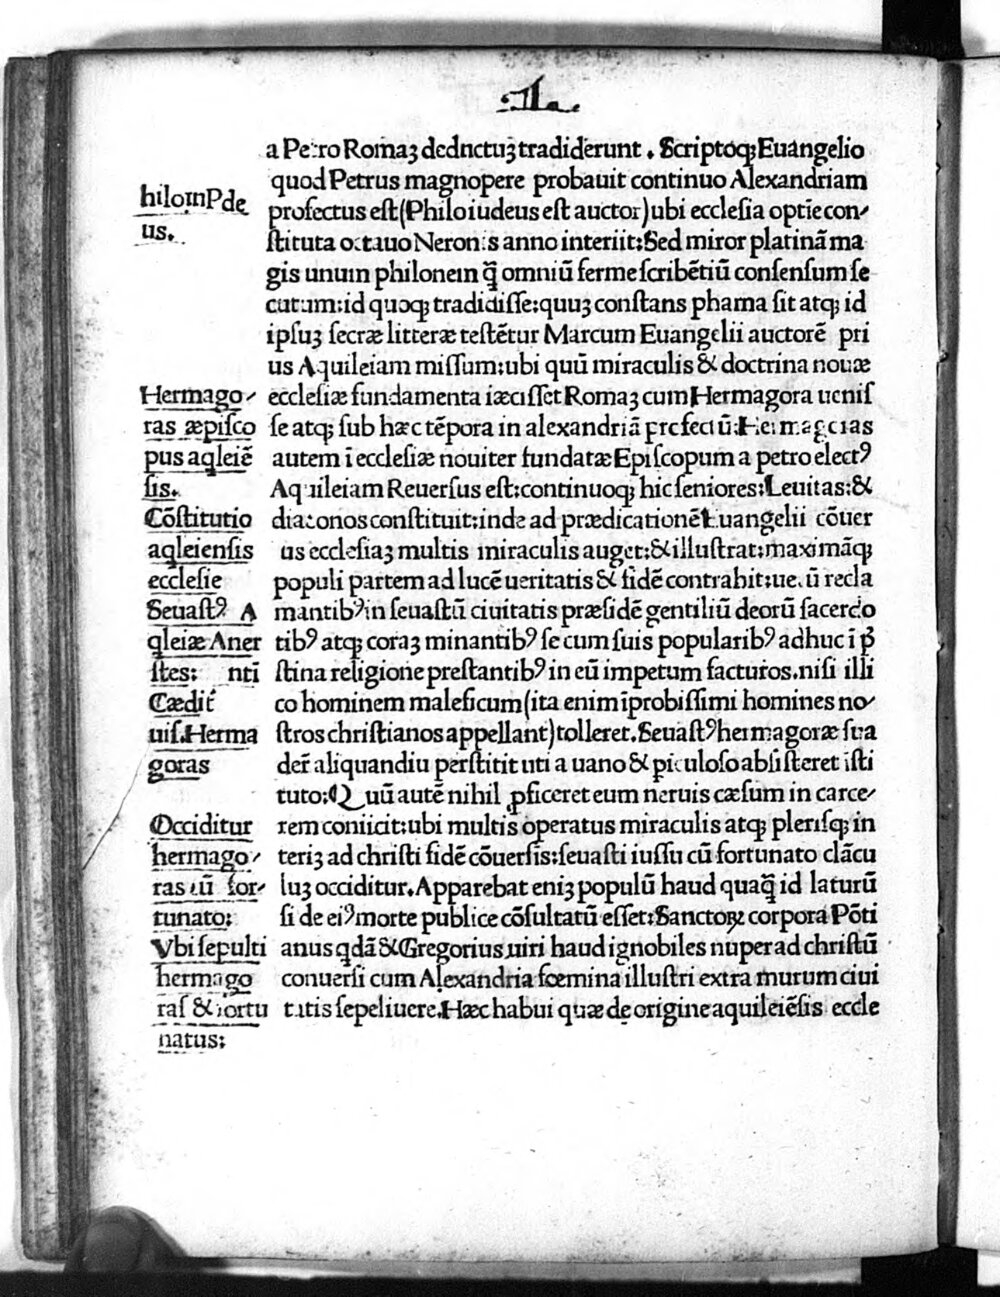 a Petro Romaꝫ dednctuꝫ tradiderunt. Scriptoqꝫ Euangelio
quod Petrus magnopere probauit continuo Alexandriam
profectus est (Philo iudeus est auctor) ubi ecclesia optie con-
stituta octauo Neronis anno interiit: Sed miror platinā ma
gis unum philonem q̄ omniū ferme scribētiū consensum se
cutum: id quoqꝫ tradidisse: quuꝫ constans phama sit atqꝫ id
ipsuꝫ secræ litteræ testētur Marcum Euangelii auctorē pri
us Aquileiam missum: ubi quū miraculis & doctrina nouæ
ecclesiæ fundamenta iæcisset Romaꝫ cum Hermagora uenis
se atqꝫ sub hæc tēpora in alexandriā profectū: Hermagoras
autem ī ecclesiæ nouiter fundatæ Episcopum a petro electꝰ
Aquileiam Reuersus est: continuoqꝫ hic seniores: Leuitas: &
diaconos constituit: inde ad prædicationē Euangelii cōuer
us ecclesiaꝫ multis miraculis auget: & illustrat: maximāqꝫ
populi partem ad lucē ueritatis & fidē contrahit: ueꝝ ū recla
mantibꝰ in seuastū ciuitatis præsidē gentiliū deorū sacerdo
tibꝰ atqꝫ coraꝫ minantibꝰ se cum suis popularibꝰ adhuc ī p̄
stina religione prestantibꝰ in eū impetum facturos. nisi illi
co hominem maleficum (ita enim īprobissimi homines no-
stros christianos appellant) tolleret. Seuastꝰ hermagoræ sua
der̄ aliquandiu perstitit uti a uano & piculoso absisteret isti
tuto: Quū autē nihil ꝓficeret eum neruis cæsum in carce-
rem coniicit: ubi multis operatus miraculis atqꝫ plerisqꝫ in
teriꝫ ad christi fidē cōuersis: seuasti iussu cū fortunato clācu
luꝫ occiditur. Apparebat eniꝫ populū haud quaq̄ id laturū
si de eiꝰ morte publice cōsultatū esset: Sanctoꝝ corpora Pōti
anus qdā & Gregorius uiri haud ignobiles nuper ad christū
conuersi cum Alexandria fœmina illustri extra murum ciui
tatis sepeliuere. Hæc habui quæ de origine aquileiēsis eccle
hiloinPde
us.
Hermago-
ras æpisco
pus aqleiē
sis.
Cōstitutio
aqleiensis
ecclesie
Seuastꝰ A
qleiæ Aner
stes: nti
Cædit̄
uis. Herma
goras
Occiditur
hermago-
ras cū for-
tunato:
Vbi sepulti
hermago
ras & fortu
natus: